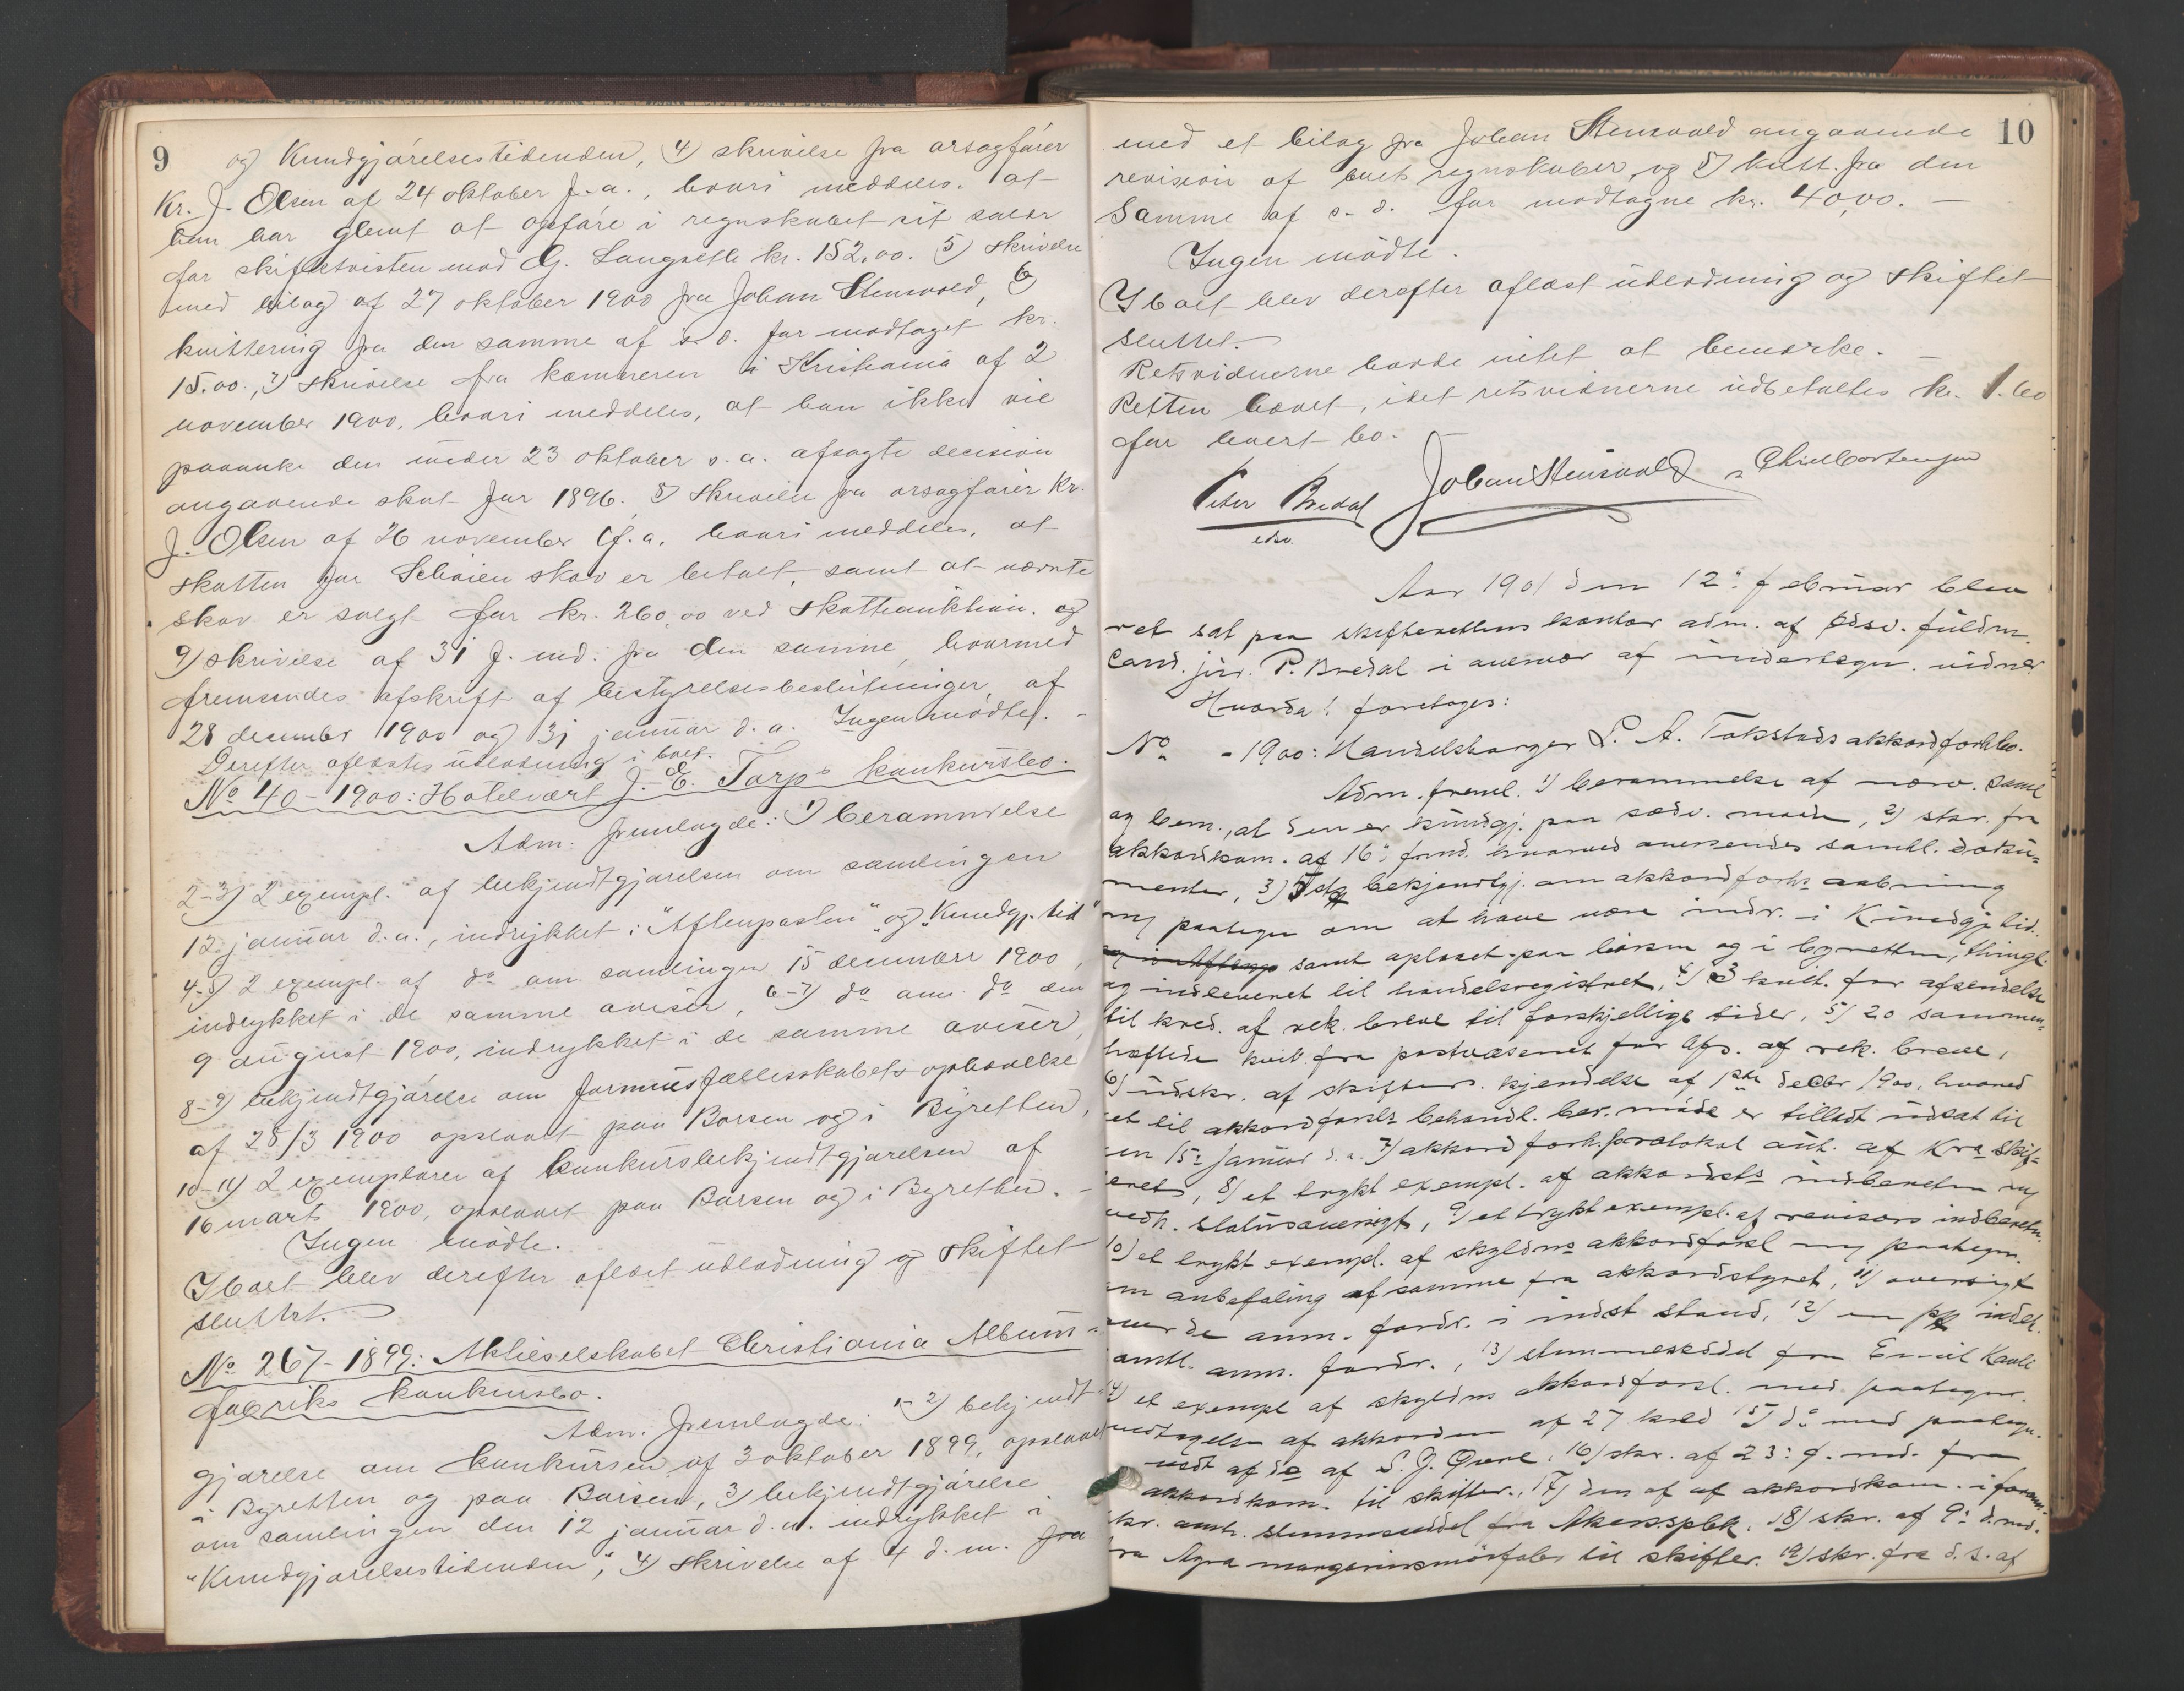 9
og Kundgjørelsestidenden, 4) skrivelse fra orsagfører
Kr. J. Olsen af 24 oktober f.a., hvori meddeles, at
han har glemt at opføre i regnskabet sit salær
for skiftetvisten mod G. Langseth kr. 152,00. 5) skrivelse
med bilag af 27 oktober 1900 fra Johan Stensvold, 6)
kvittering fra den samme af s. d. for modtaget kr.
15.00., 7) skrivelse fra kæmneren i Kristiania af 2
november 1900, hvori meddeles, at han ikke vil
paaanke den under 23 oktober s.a. afsagte decision
angaaende skat for 1896. 8) skrivelse fra orsagfører Kr.
J. Olsen af 26 november f.a. hvori meddeles, at
skatten for skov er betalt, samt at nævnte
skov er solgt for kr. 260,00 ved skatteauktion. og
9) skrivelse af 31 f. md. fra den samme, hvormed
fremsendes afskrift af bestyrelsesbeslutninger, af
28 december 1900 og 31 januar d.a. Ingen mødte. -
Derefter oflæstes udlodning i boet.
No 40 - 1900: Hotelvært J. E. Torps konkursbo.
Adm. fremlagde: 1) berammelse
2-3) 2 exempl. af bekjendtgjørelsen om samlingen
12 januar d.a., indrykket i "Aftenposten" og "Kundgj. tid"
4-5) 2 exempl. af do om samlingen 15 december 1900,
indrykket i de samme aviser, 6-7) do om do den
9 august 1900, indrykket i de samme aviser,
8-9) bekjendtgjørelse om formuesfællesskabets ophævelse
af 28/3 1900 opslaaet paa Børsen og i Byretten,
10-11) 2 exemplarer af konkursbekjendtgjørelsen af
16 marts 1900, opslaaet paa Børsen og i Byretten. -
Ingen mødte.
I boet blev derefter oflæst udlodning og skiftet
sluttet.
No 267 - 1899: Aktieselskabet Christiania Album-
fabriks konkursbo.
Adm. fremlagde: 1-2) bekjendt-
gjørelse om konkursen af 3 oktober 1899, opslaaet
i Byretten og paa Børsen, 3) bekjendtgjørelse
om samlingen den 12 januar d.a. indrykket i
"Kundgjørelsestidenden", 4) skrivelse af 4 d. m. fra
10
med et bilag fra Johan Stensvold angaaende
revision af boets regnskaber, og 5) kvitt. fra den
samme af s. d. for modtagne kr. 40,00. -
Ingen mødte.
I boet blev derefter oflæst udlodning og skiftet
sluttet. -
Retsvidnerne havde intet at bemærke. -
Retten hævet, idet retsvidnerne udbetaltes kr. 1.60
for hvert bo. -
Peter Bredal Johan Stensvold
edsv.
Aar 1901 den 12te februar blev
ret sat paa skifterettens kontor adm. af edsv. fuldm.
Cand. jur. P. Bredal i overvær af undertegn. vidner
Hvorda! foretoges:
No - 1900: Handelsborger L. A. Tokstads akkordforh.bo.
Adm. freml. 1) berammelse af nærv. saml
og bem., at den er kundgj. paa sædv. maade, 2) skr. fra
akkordkom. af 16de f.md. hvorved oversendes samtl. doku-
menter, 3) bekjendtgj. om akkordforhs aabning
m/ paategn om at have være indr. i Kundgj.tid.
samt oplæset paa børsen og i byretten, thingl.
og indleveret til handelsregistret, 4) 3 kvitt. for afsendelse
til kred. af rek. breve til forskjellige tider, 5) 20 sammen-
hæftede kvit fra postvæsenet for afs. af rek. breve,
6) udskr. af skifter. kjendelse af 1ste decbr 1900, hvorved
et til akkordforslts behandl. ber. møde er tilladt udsat til
en 15de januar d.a. 7) akkordforh.protokol aut. af Kra Skif-
eret, 8) et trykt exempl. af akkordsts indberetn m/
vedh. statusoversigt, 9) et trykt exempl. af revisors indberetn.
10) et trykt exempl. af skyldns akkordforsl m/ paategn.
om anbefaling af samme fra akkordstyret, 11) oversigt
over de anm. fordr. i indst stand, 12) en indeh.
samtl. anm. fordr., 13) stemmeseddel fra Emil
14) et exempl af skyldns akkordforsl. med paategn.
modtagelse af akkorden af 27 kred 15) do med paategn.
vedt af do af S. J. 16) skr. af 23: f. md. fra
akkordkom. til skifter., 17) den af af akkordkom. i foran.
skr. omh. stemmeseddel fra Akers spbk. 18) skr. af 9: d.md.
fra Agra margarinsmørfabr til skifter. 19) skr. fra d. s. af